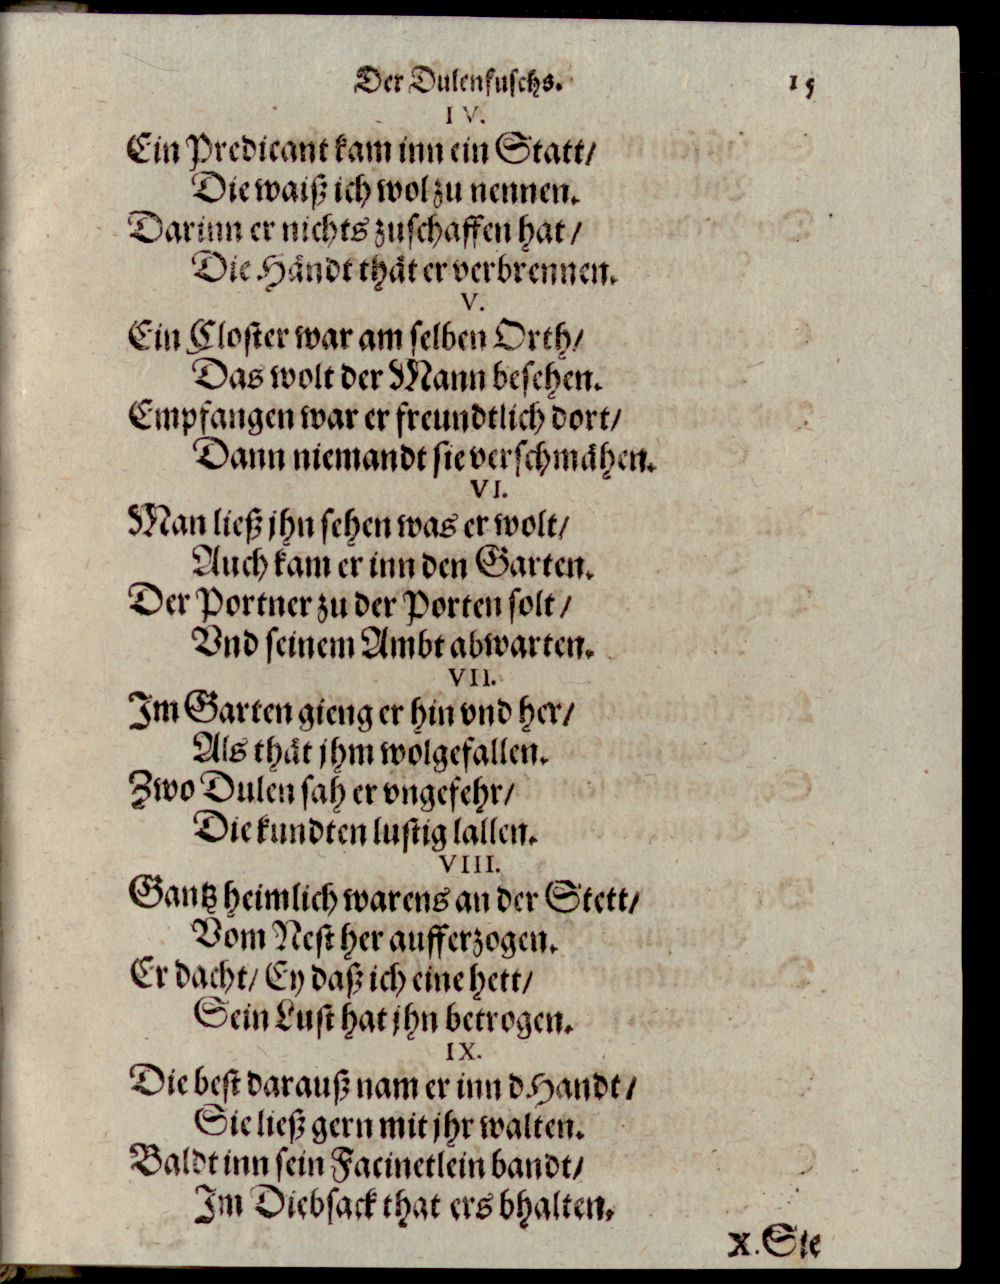 Der Dulenfuschs. 15
IV.
Ein Predicant kam inn ein Statt/
Die waiß ich wol zu nennen.
Darinn er nichts zuschaffen hat/
Die Händt thät er verbrennen.
V.
Ein Closter war am selben Orth/
Das wolt der Mann besehen.
Empfangen war er freundtlich dort/
Dann niemandt sie verschmähen.
VI.
Man ließ jhn sehen was er wolt/
Auch kam er inn den Garten.
Der Portner zu der Porten solt/
Vnd seinem Ambt abwarten.
VII.
Im Garten gieng er hin vnd her/
Als thät jhm wolgefallen.
Zwo Dulen sah er vngefehr/
Die kundten lustig lallen.
VIII.
Gantz heimlich warens an der Stett/
Vom Nest her aufferzogen.
Er dacht/ Ey daß ich eine hett/
Sein Lust hat jhn betrogen.
IX.
Die best darauß nam er inn d Handt/
Sie ließ gern mit jhr walten.
Baldt inn sein Facinetlein bandt/
Im Diebsack that ers bhalten.
X. Sie